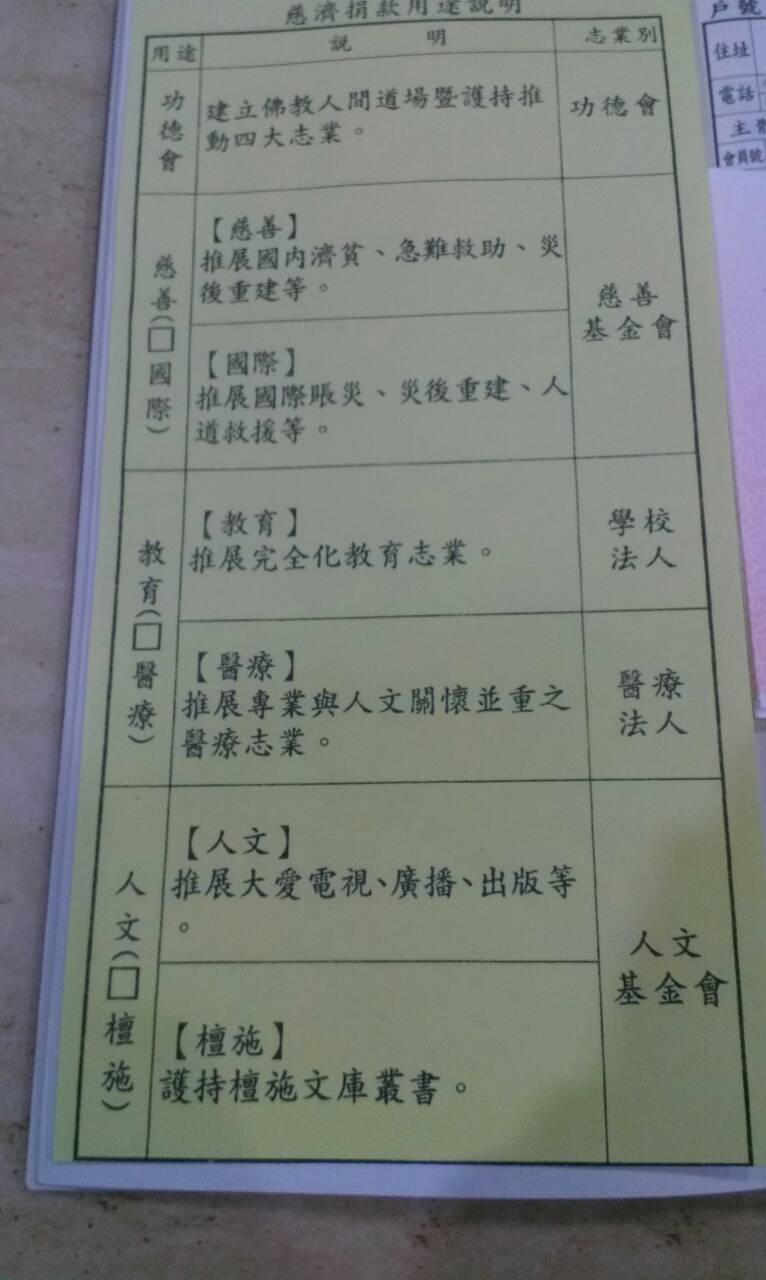 慈濟捐款用途說明
用途 說明 志業別
功德會
建立佛教人間道場暨護持推
動四大志業。
功德會
慈善(□國際)
【慈善】
推展國内濟貧、急難救助、災
後重建等。
【國際】
推展國際賬災、災後重建、人
道救援等。
慈善
基金會
教育(□醫療)
【教育】
推展完全化教育志業。
學校
法人
【醫療】
推展專業與人文關懷並重之
醫療志業。
醫療
法人
人文(□檀施)
【人文】
推展大愛電視、廣播、出版等
。
【檀施】
護持檀施文庫叢書。
人文
基金會
戶號
住址
電話
會員號